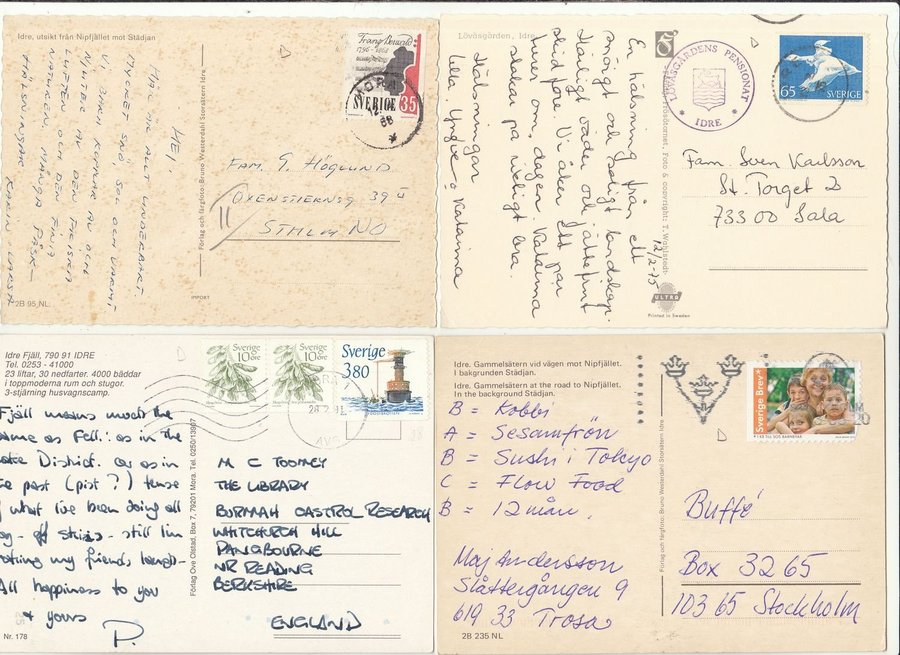 Idre, utsikt från Nipfjället mot Städjan
HEJ,
HÄR ÄR ALLT UNDERBART.
MYCKET SNÖ SOL OCH VARMT
VI BARN KOMMAR AV OCH
NJUTER AV DEN FRISKA
LUFTEN OCH DEN FINA
UTSIKTEN. MÅNGA PÅSK-
HÄLSNINGAR KARIN
2B 95 NL.
Förlag och färgfoto: Bruno Westerdahl Storsätern Idre
IMPORT
Franz Berwald
1796-1868
SVERIGE 35
MORA
68
FAM. G. HÖGLUND
OXENSTIERNSG 39 II
STHLM NO
Lövåsgården, Idre
En hälsning från ett
snöigt och soligt landskap.
Härligt väder och jättefint
skidföre. Vi åker ett par
turer om dagen. Katarina
stakar på riktigt bra.
Hälsningar
Ulla Yngve o Katarina
12/2-75
Foto & copyright: T. Wohlstedt
ULTRA
Printed in Sweden
LÖVÅSGÅRDENS PENSIONAT
IDRE
65 SVERIGE
Fam. Sven Karlsson
St. Torget 2
733 00 Sala
Idre Fjäll, 790 91 IDRE
Tel. 0253 - 41000
23 liftar, 30 nedfarter. 4000 bäddar
i toppmoderna rum och stugor.
3-stjärning husvagnscamp.
Fjäll means much the
same as Fell: as in the
Lake District. Or as in
the past (pist?) tense
of what I've been doing all
day - off skiing - still I'm
making my friends laugh -
All happiness to you
& yours
P.
Nr. 178
Förlag Ove Olstad, Box 7, 79201 Mora. Tel. 0250/13907
Sverige
10 öre
Sverige
10 öre
Sverige
380
M C TOOMEY
THE LIBRARY
BURMAH CASTROL RESEARCH
WHITCHURCH HILL
PANGBOURNE
NR READING
BERKSHIRE
ENGLAND
Idre. Gammelsätern vid vägen mot Nipfjället.
I bakgrunden Städjan.
Idre. Gammelsätern at the road to Nipfjället.
In the background Städjan.
B = Kobbi
A = Sesamfrön
B = Sushi i Tokyo
C = Flow Food
B = 12 mån.
Maj Andersson
Slåttergången 9
619 33 Trosa
2B 235 NL
Förlag och färgfoto: Bruno Westerdahl Storsätern Idre
Sverige Brev
Buffé
Box 3265
103 65 Stockholm